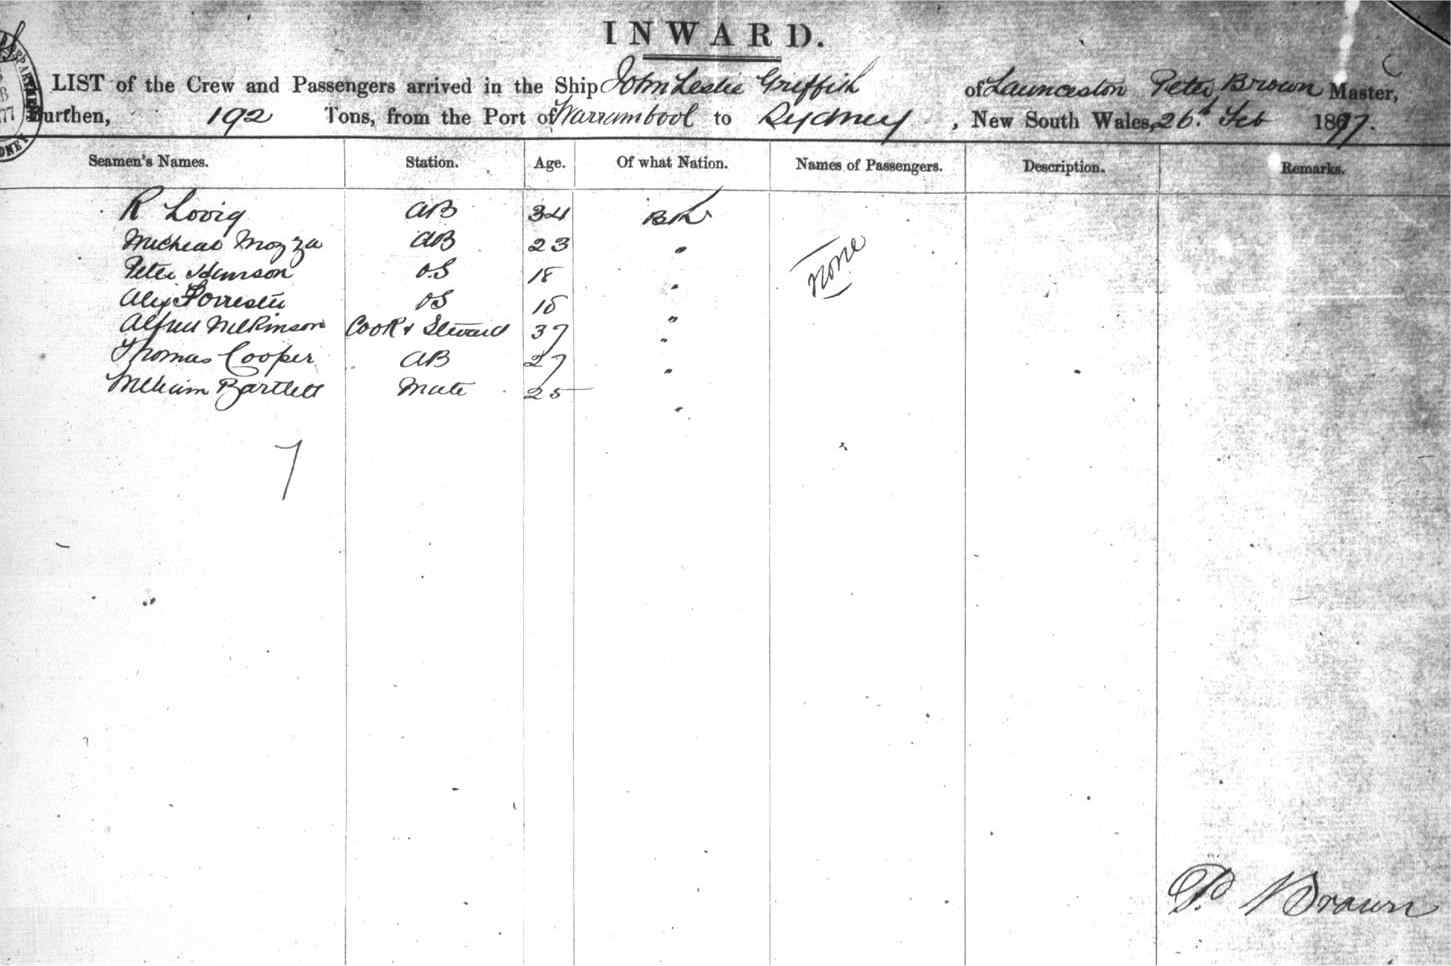 INWARD.
LIST of the Crew and Passengers arrived in the Ship John Leslie Griffith of Launceston Peter Brown Master,
Burthen, 192 Tons, from the Port of Warrambool to Sydney, New South Wales, 26th Feb 1877.
Seamen's Names. Station. Age. Of what Nation. Names of Passengers. Description. Remarks.
R Lovig AB 34
Micheal Mozza AB 23 "
Peter OS 18 "
Alex Forrester OS 18 "
Alfred Wilkinson Cook & Steward 37 "
Thomas Cooper AB 27 "
William Bartlett Mate 25 "
none
7
P. Brown